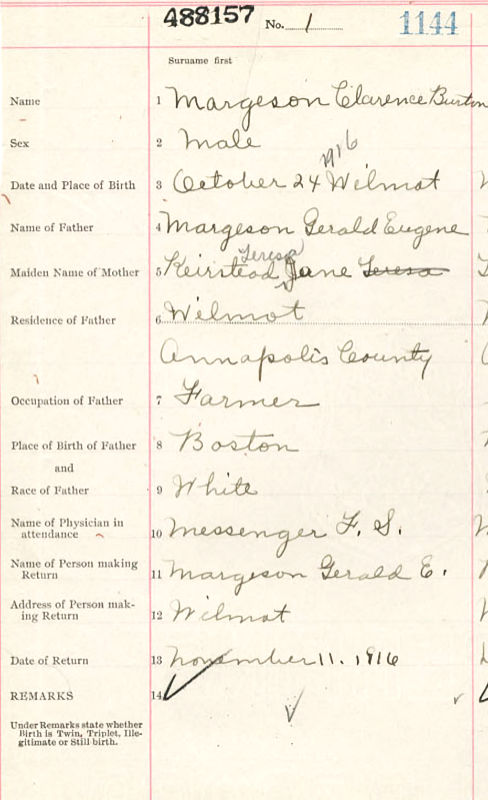 488157 No. 1 1144
Surname first
Name 1 Margeson Clarence Burton
Sex 2 Male
1916
Date and Place of Birth 3 October 24 Wilmot
Name of Father 4 Margeson Gerald Eugene
Teresa
Maiden Name of Mother 5 Keirstead Jane Teresa
Residence of Father 6 Wilmot
Annapolis County
Occupation of Father 7 Farmer
Place of Birth of Father 8 Boston
and
Race of Father 9 White
Name of Physician in
attendance 10 Messenger F. S.
Name of Person making
Return 11 Margeson Gerald E.
Address of Person mak-
ing Return 12 Wilmot
Date of Return 13 November 11. 1916
REMARKS 14
Under Remarks state whether
Birth is Twin, Triplet, Ille-
gitimate or Still birth.